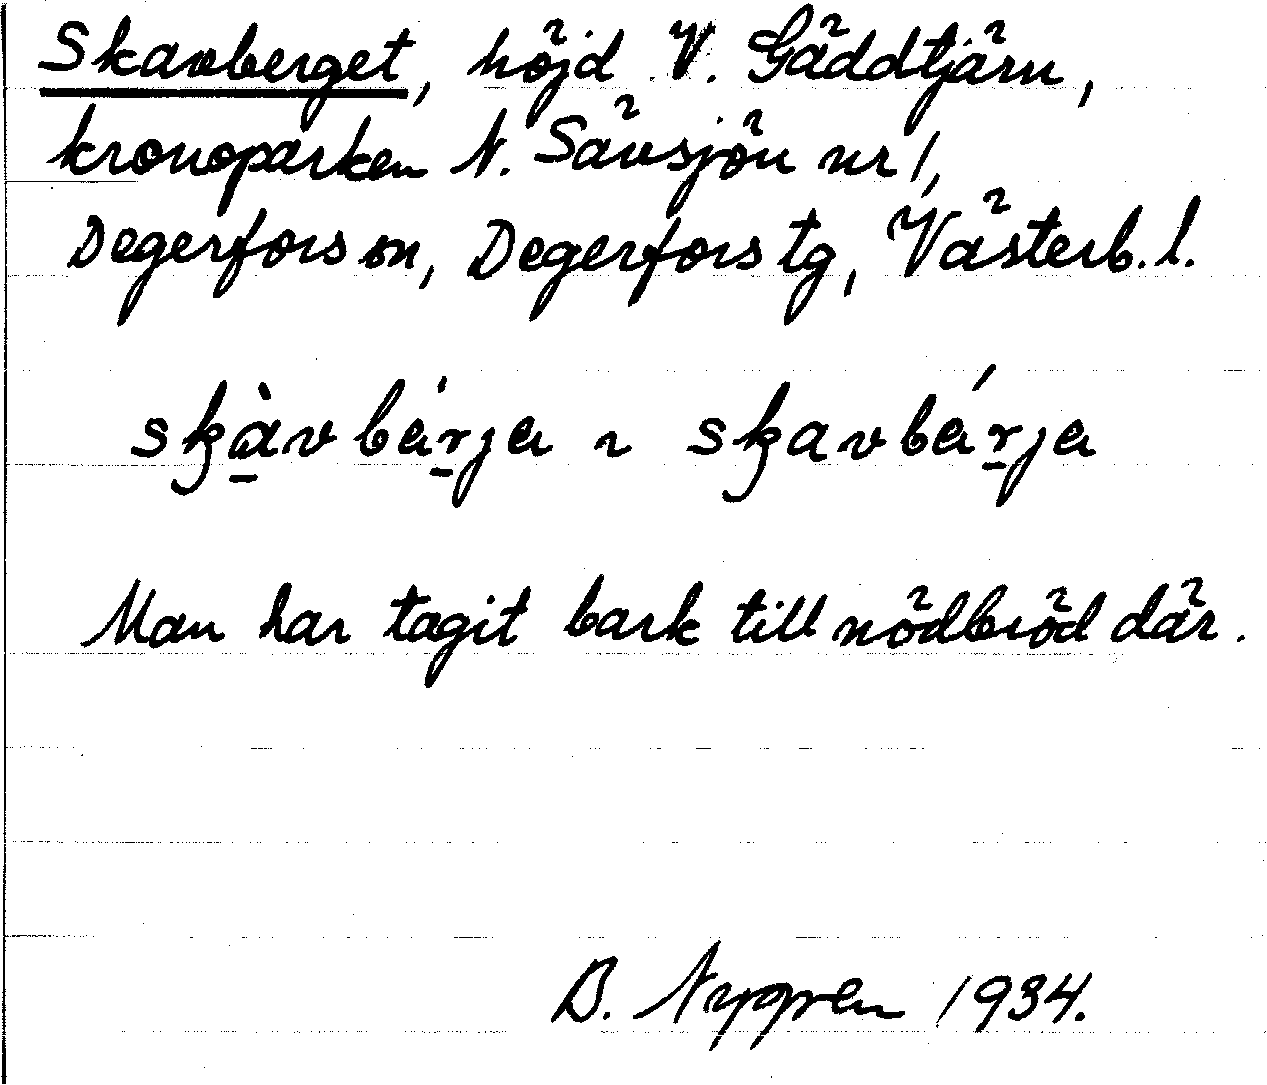 Skavberget, höjd V. Gäddtjärn,
kronoparken N. Sävsjön nr 1,
Degerfors sn, Degerfors tg, Västerb. l.
skàvbárja ~ skavbárja
Man har tagit bark till nödbröd där.
B. Nygren 1934.